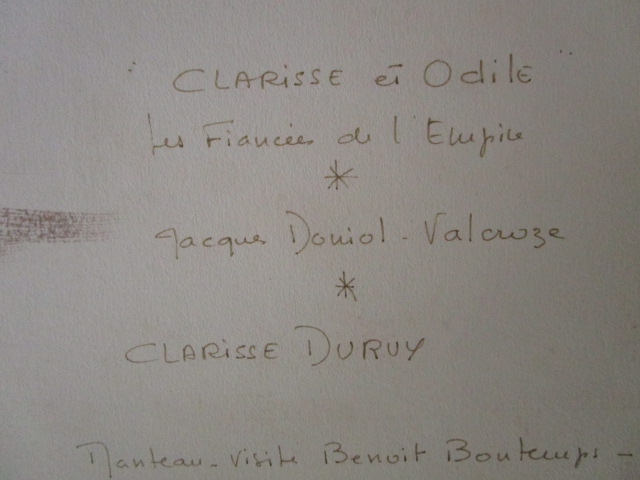 " CLARISSE et Odile "
Les Fiancées de l'Empire
*
Jacques Doniol - Valcroze
*
CLARISSE DURUY
Manteau - Visite Benoit Bontemps -